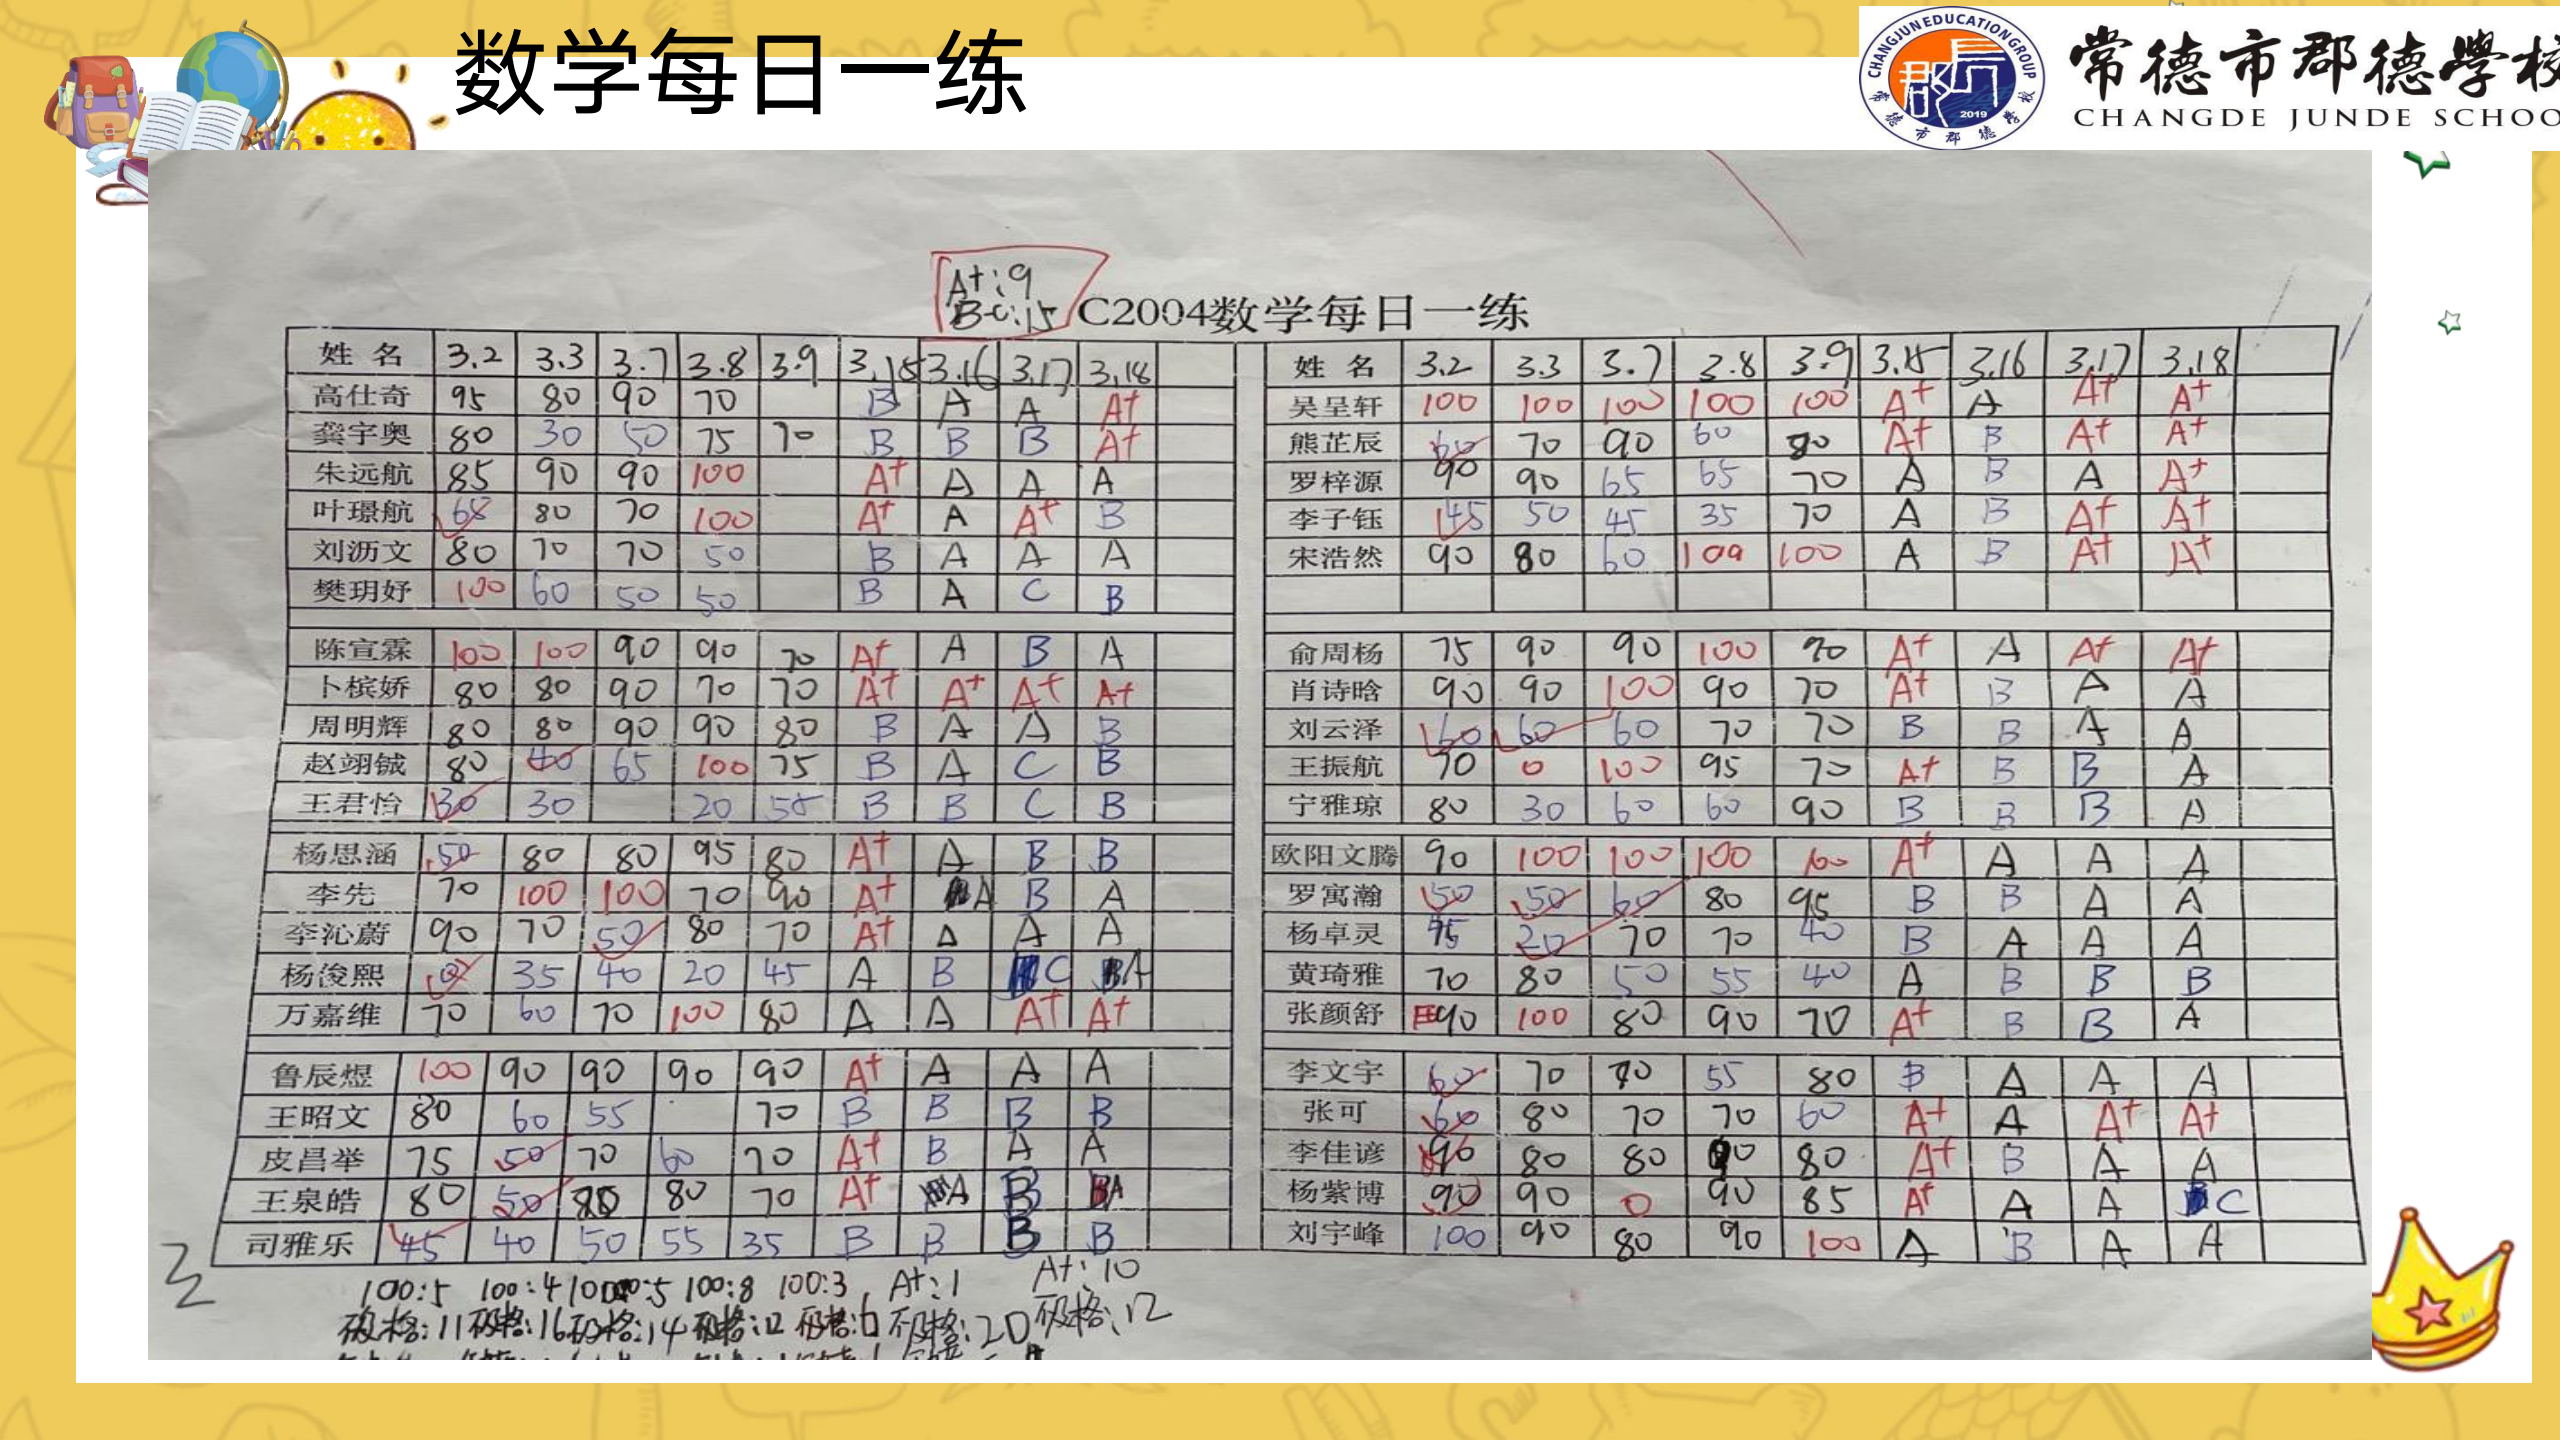 数学每日一练
CHANGJUN EDUCATION GROUP
郡
2019
常德市郡德学校
常德市郡德學校
CHANGDE JUNDE SCHOO
A+:9
B-C:15
C2004数学每日一练
姓名 3.2 3.3 3.7 3.8 3.9 3.15 3.16 3.17 3.18
高仕奇 95 80 90 70 B A A A+
龚宇奥 80 30 50 75 70 B B B A+
朱远航 85 90 90 100 A+ A A A
叶璟航 68 80 70 100 A+ A A+ B
刘沥文 80 70 70 50 B A A A
樊玥妤 100 60 50 50 B A C B
陈宣霖 100 100 90 90 70 A+ A B A
卜槟娇 80 80 90 70 70 A+ A+ A+ A+
周明辉 80 80 90 90 80 B A A B
赵翊铖 80 40 65 100 75 B A C B
王君怡 30 30 20 50 B B C B
杨思涵 50 80 80 95 80 A+ A B B
李先 70 100 100 70 90 A+ A B A
李沁蔚 90 70 50 80 70 A+ A A A
杨俊熙 35 40 20 45 A B C A
万嘉维 70 60 70 100 80 A A A+ A+
鲁辰煜 100 90 90 90 90 A+ A A A
王昭文 80 60 55 70 B B B B
皮昌举 75 50 70 60 70 A+ B A A
王泉皓 80 50 80 70 A+ A B A
司雅乐 45 40 50 55 35 B B B B
姓名 3.2 3.3 3.7 3.8 3.9 3.15 3.16 3.17 3.18
吴呈轩 100 100 100 100 100 A+ A A+ A+
熊芷辰 60 70 90 60 80 A+ B A+ A+
罗梓源 90 90 65 65 70 A B A A+
李子钰 45 50 45 35 70 A B A+ A+
宋浩然 90 80 60 100 100 A B A+ A+
俞周杨 75 90 90 100 70 A+ A A+ A+
肖诗晗 90 90 100 90 70 A+ B A A
刘云泽 60 60 60 70 70 B B A A
王振航 70 0 100 95 70 A+ B B A
宁雅琼 80 30 60 60 90 B B B A
欧阳文腾 90 100 100 100 100 A+ A A A
罗寓瀚 50 50 60 80 95 B B A A
杨卓灵 95 20 70 70 40 B A A A
黄琦雅 70 80 50 55 40 A B B B
张颜舒 90 100 80 90 70 A+ B B A
李文宇 60 70 70 55 80 B A A A
张可 60 80 70 70 60 A+ A A+ A+
李佳谚 90 80 80 90 80 A+ B A A
杨紫博 90 90 0 90 85 A+ A A C
刘宇峰 100 90 80 90 100 A B A A
100:5 100:4 100:5 100:8 100:3 A+:1 A+:10
不及格:11 不及格:16 不及格:14 不及格:12 不及格:6 不及格:20 不及格:12